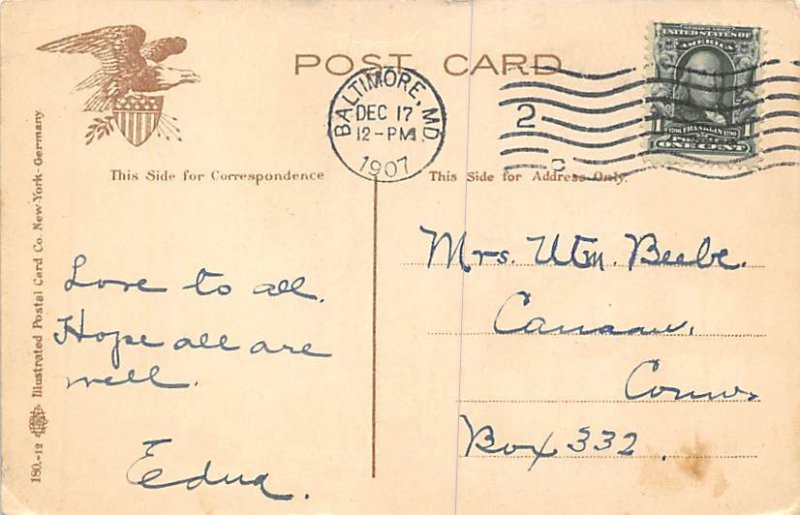 POST CARD
BALTIMORE, MD.
DEC 17
12-PM
1907
2
C
UNITED STATES OF
AMERICA
1 FRANKLIN 1
ONE CENT
This Side for Correspondence
This Side for Address Only.
180.-12 Illustrated Postal Card Co. New-York.-Germany
Love to all.
Hope all are
well.
Edna.
Mrs. Wm. Beebe.
Canaan,
Conn.
Box 332.